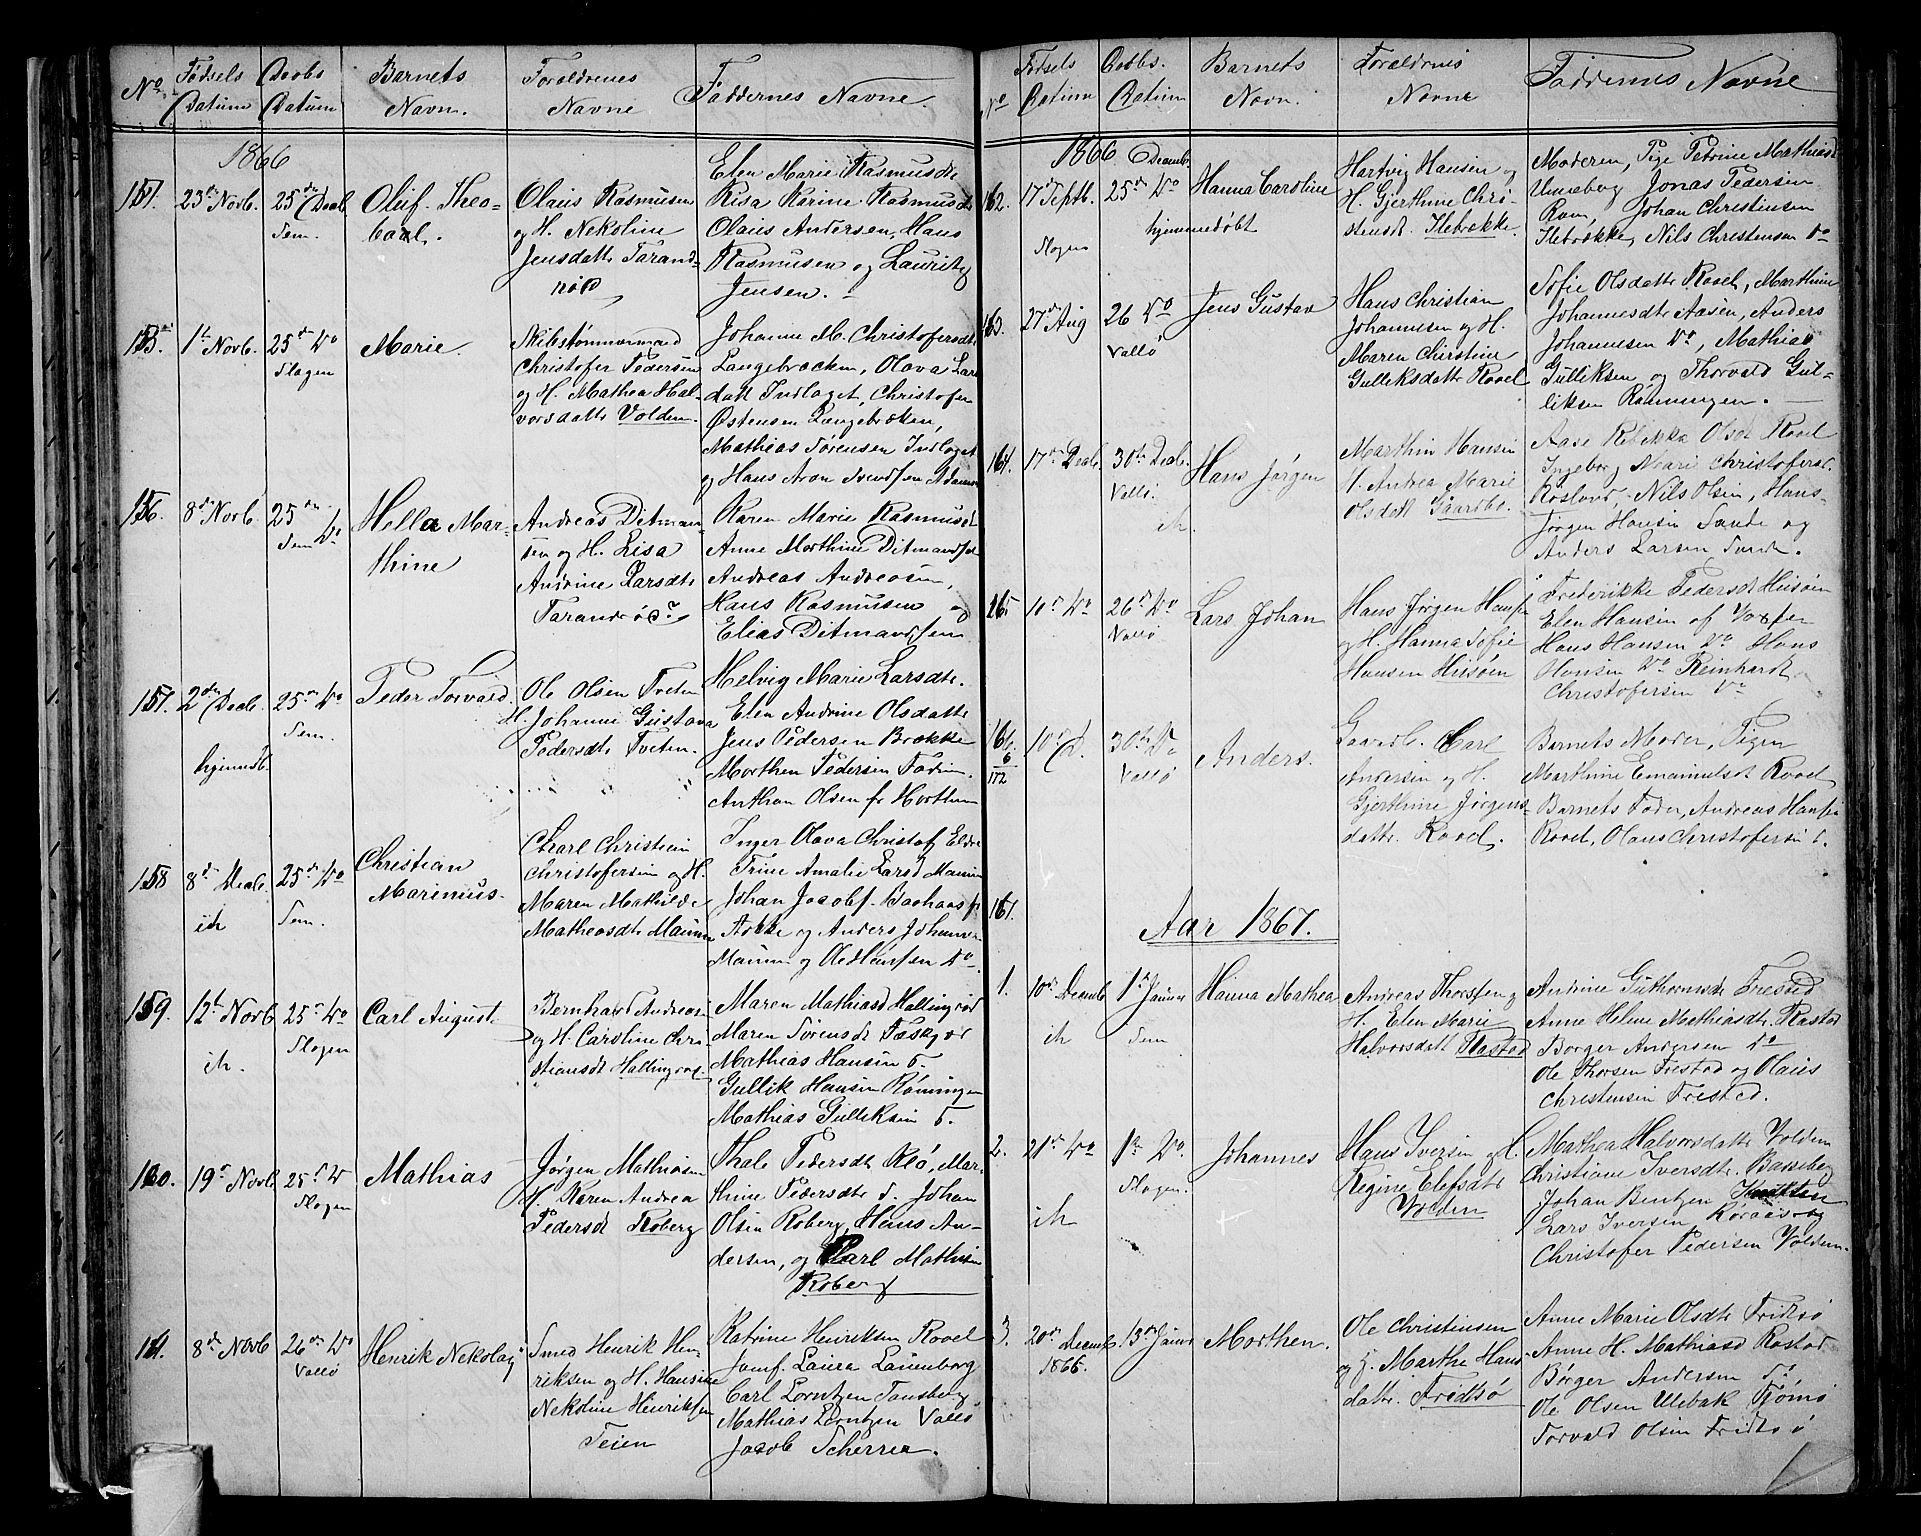 No
Fødsels
Datum
Daabs
Datum
Barnets
Navn.
Foraldrenes
Navne
Faddernes Navne.
1866
23de Novb.
25de Decb.
Sem.
Oluf Theo-
Olaus Rasmusen
og H. Nekoline
Jensdatte Tarand-
rød
Elen Marie Rasmusdt
Risa Karine Rasmusdt
Olaus Andersen, Hans
Rasmusen og Lauritz
Jensen.
155.
1t Novb.
25de Do
Slagen
Marie.
Skibstømmermand
Christofer Pedersen
og H. Mathea Hal-
vorsdatte Volden.
Johanne M. Christofersdt
Langebrocken, Olava Lars
datt Indlaget, Christofer
Østensen Langebrocken,
Mathias Sørensen Indlaget
og Hans Aron Svendsen
156.
8de Novb.
25de
Sem Do
Hella Mar-
thine
Andreas Ditman-
sen og H. Lisa
Andrine Larsdt.
Tarandrød
Karen Marie Rasmusdt
Anne Marthine Ditmandsdt
Andreas Andreasen,
Hans Rasmussen og
Elias Ditmandsen
157.
2den Decb.
hjemmedb.
25de Do
Sem.
Peder Torvard
Ole Olsen Tveten
H. Johanne Gustava
Pedersdt Tveten.
Helvig Marie Larsdt.
Elen Andrine Olsdatte
Jens Pedersen Brække
Morthen Pedersen
Anthon Olsen fr Horthen
158
8de Decb.
ih
25de Do
Sem.
Christian
Marinus.
Charl Christian
Christofersen og H.
Maren Mathilde
Matheasdt
Inger Olava Christof
Trine Amalie Larsd
Johan Jacobs. Bachaas fr
og Anders Johannes
og Ole
159.
12t Novb
ih.
25de Do
Slagen
Carl August
Bernhard Andreas
og H. Caroline Chri
stiansdt Hallingrød
Maren Mathiasd Hallingrød
Maren Sørensdt
Mathias Hansen
Gullik Hansen Røningen
Mathias Gulliksen
160.
19de Novb
25de Do
Slagen
Mathias
Jørgen Mathisen
H. Karen Andrea
Pedersdt Roberg
Thale Pedersdt Klø, Mar-
thine Pedersdt Do. Johan
Olsen Roberg, Hans An-
dersen, og Carl Mathisen
Roberg
8de Novb
26de Do
Vallø
Henrik Nekolay
Smed Henrik Hen-
riksen og H. Hansine
Nekoline Henriksen
Feien
Katrine Henriksen Rovel
Jomf. Laura Lauenborg
Carl Lorntzen Tønsberg
Mathias Lorntzen Vallø
Jacob Scherrer.
No
Fødsels
Datum
Daabs.
Datum
Barnets
Navn.
Foraldrenes
Navne
Faddernes Navne
1866
Decemb.
162.
17d Septb.
Slagen
25de Do
hjemmedøbt
Hanna Caroline
Hartvig Hansen og
H. Gjerthine Chri-
stensdt. Ilebrække.
Moderen, Pige Petrine Mathiasd
Unneberg Jonas Pedersen
Ram, Johan Christensen
Ilebrække, Nils Christensen Do
163.
27d Aug
26 Do
Vallø
Jens Gustav
Hans Christian
Johannesen og H.
Maren Christine
Gulliksdatte Rovel
Sofie Olsdatte Rovel, Marthine
Johannesdt Aasen, Anders
Johannesen Do, Mathias
Gulliksen og Thorvald Gul-
liksen Rønningen.
164.
17de Decb.
30te Decb.
Vallø.
ih
Hans Jørgen
Marthin Hansen
H. Andrea Marie
Olsdatt
Aase Rebekka Olsdt Rovel
Ingeborg Marie Christofersd.
Nils Olsen, Hans
Jørgen Hansen Sande og
Anders Larsen Sande.
165
10de Do
26de Do
Vallø
Lars Johan
Hans Jørgen Hansen
og H. Hanna Sofie
Hansen Husøen
Frederikke Pedersdt Husøen
Elen Hansen af
Hans Hansen Do Hans
Hansen Do Reinhardt
Christofersen Do
166
6
172
10de
30te Do
Vallø
Anders.
Gaardb. Carl
Andersen og H.
Gjerthine Jørgens-
datte. Rovel.
Barnets Moder, Pigen
Marthine Emanuelsdt Rovel
Barnets Fader, Andreas Hansen
Rovel, Olaus Christofersen
167.
Aar 1867.
1.
10de Decemb
ih
1ste Januar
Sem
Hanna Mathea
Andreas Thorsen og
H. Elen Marie
Halvorsdatt Rastad
Andrine Guthormsdt Frestad
Anne Helene Mathiasdt. Rastad
Borger Andersen Do
Ole Thorsen Frestad og Olaus
Christensen Frestad.
2.
21de Do
ih
1ste Do.
Slagen.
Johannes
Hans Iversen og H.
Regine Elefsdt
Volden
Mathea Halvorsdatte Volden
Christiane Iversdt. Basseberg
Johan Bentzen
Lars Iversen, og
Christofer Pedersen Volden.
3.
20de Decemb.
1865.
13de Januar
Morthen.
Ole Christensen
og H. Marthe Hans-
datte. Fridtsø
Anne Marie Olsdt Fridtsø
Anne H. Mathiasd Rostad
Børger Andersen Do
Ole Olsen Ulebak Tjømø
Torvald Olsen Fridtsø